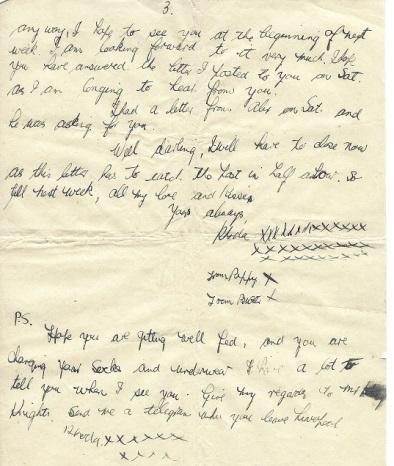 3.
anyway, I hope to see you at the beginning of next
week. I am looking forward to it very much. I hope
you have answered the letter I posted to you on Sat.
as I am longing to hear from you.
I had a letter from Alex on Sat. and
he was asking for you
Well darling, I will have to close now
as this letter has to catch the post in half
till next week, all my love and kisses
Yours always,
Rhoda xxxxxxxxxxxxx
xxxxxxxxxxxx
xxxxxxxxxxxx
From x
From x
P.S.
Hope you are getting well fed, and you are
changing your socks and underwear I have a lot to
tell you when I see you. Give my regards to Mr
Knights. Send me a telegram when you leave Liverpool
xxxxxxx
xxxx